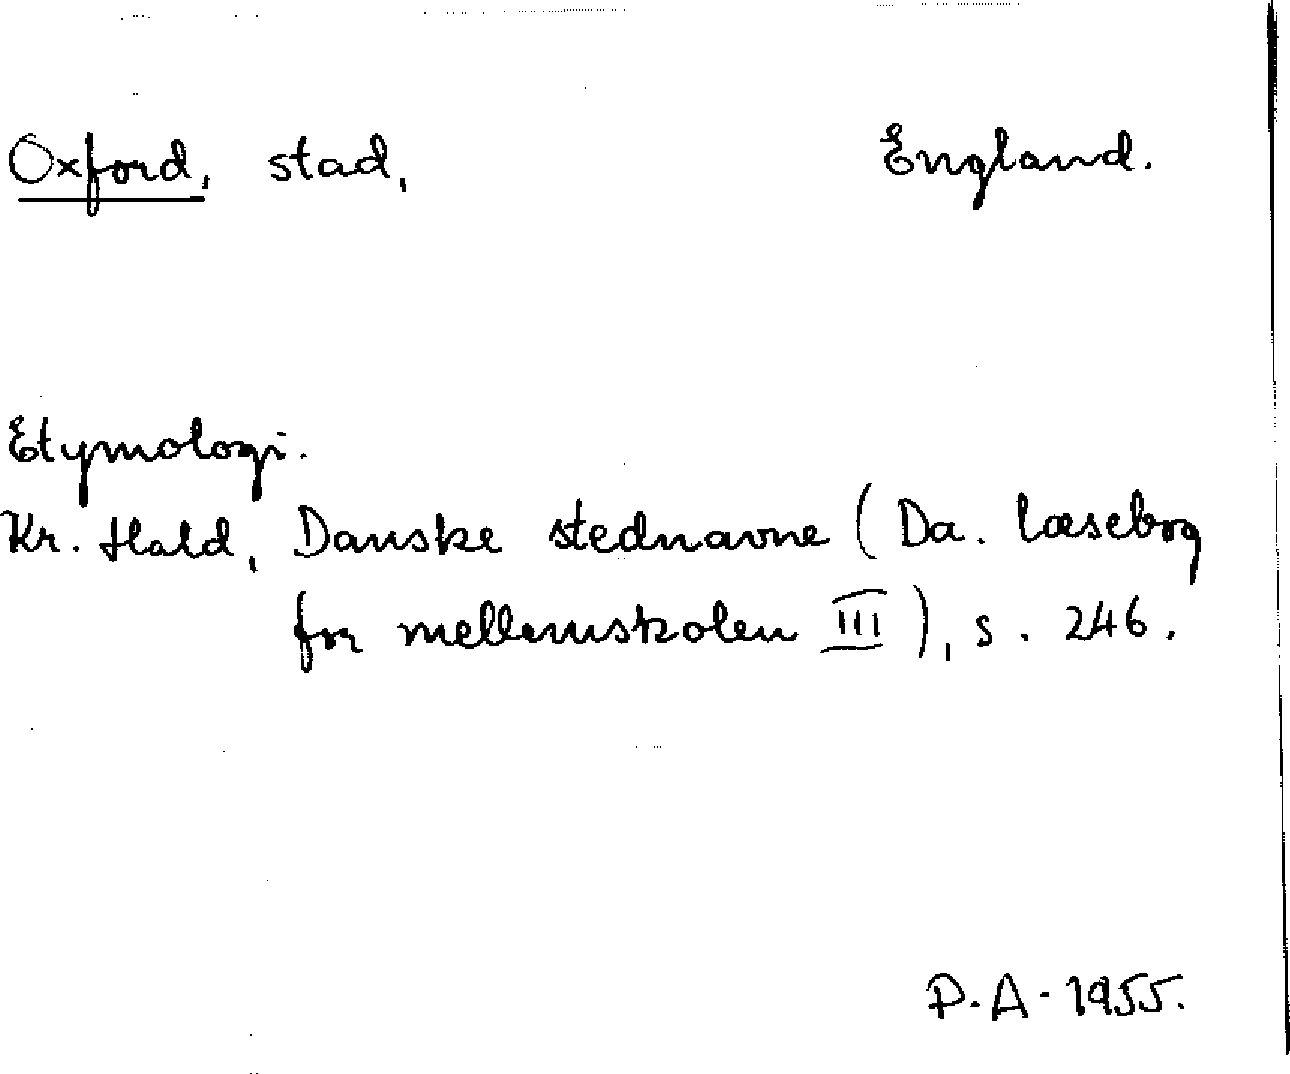 Oxford, stad, England.
Etymologi.
Kr. Hald, Danske stednavne (Da. læsebog
for mellemskolen III), s. 246.
P.A. 1955.